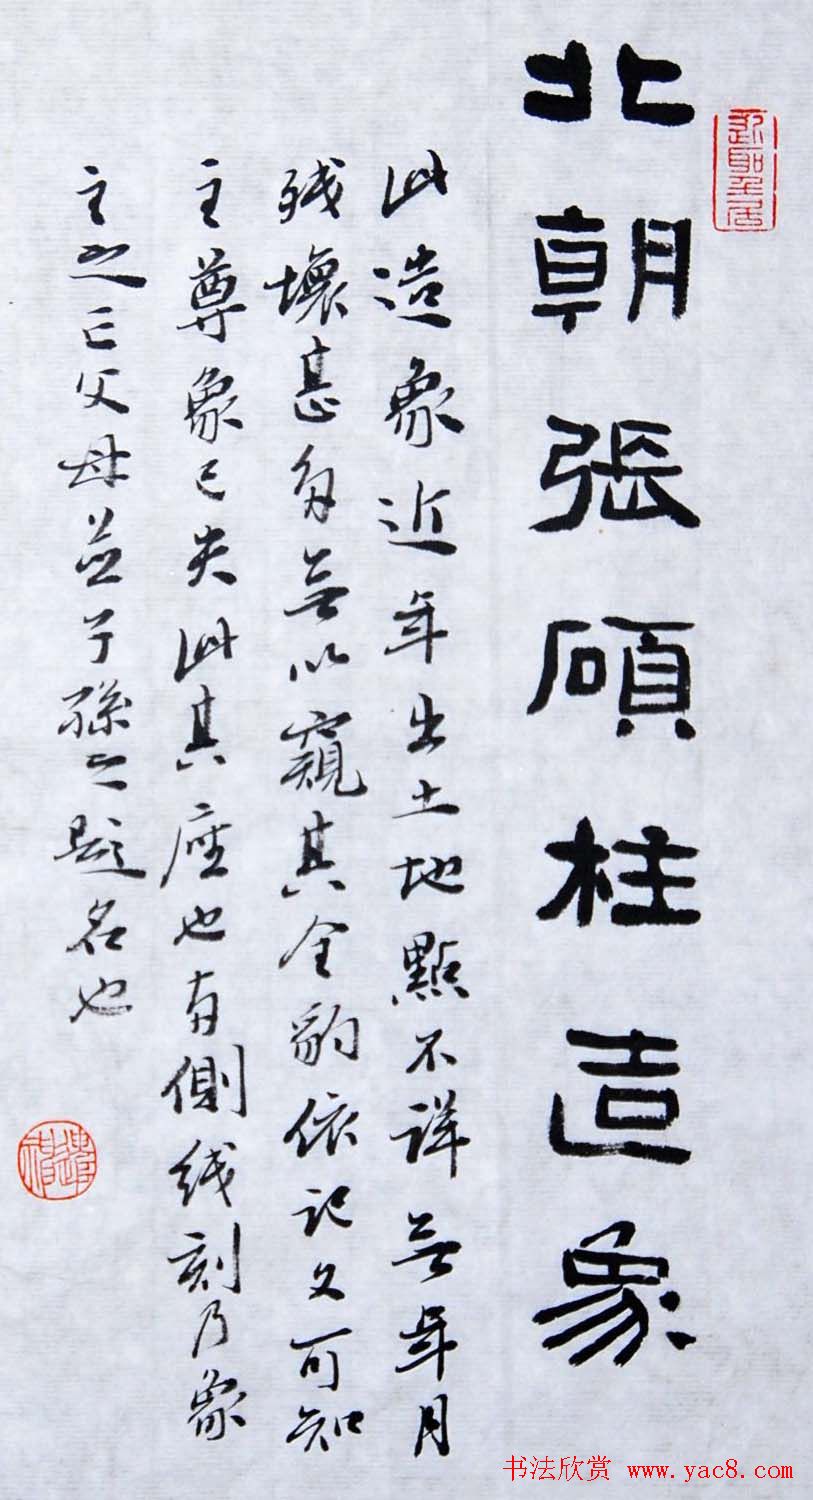 北朝張碩柱造象
此造象近年出土地點不詳無年月
残壞甚多無以窺其全豹依记文可知
主尊象已失此其座也右側线刻乃象
主之亡父母並子孫之題名也
书法欣赏 www.yac8.com